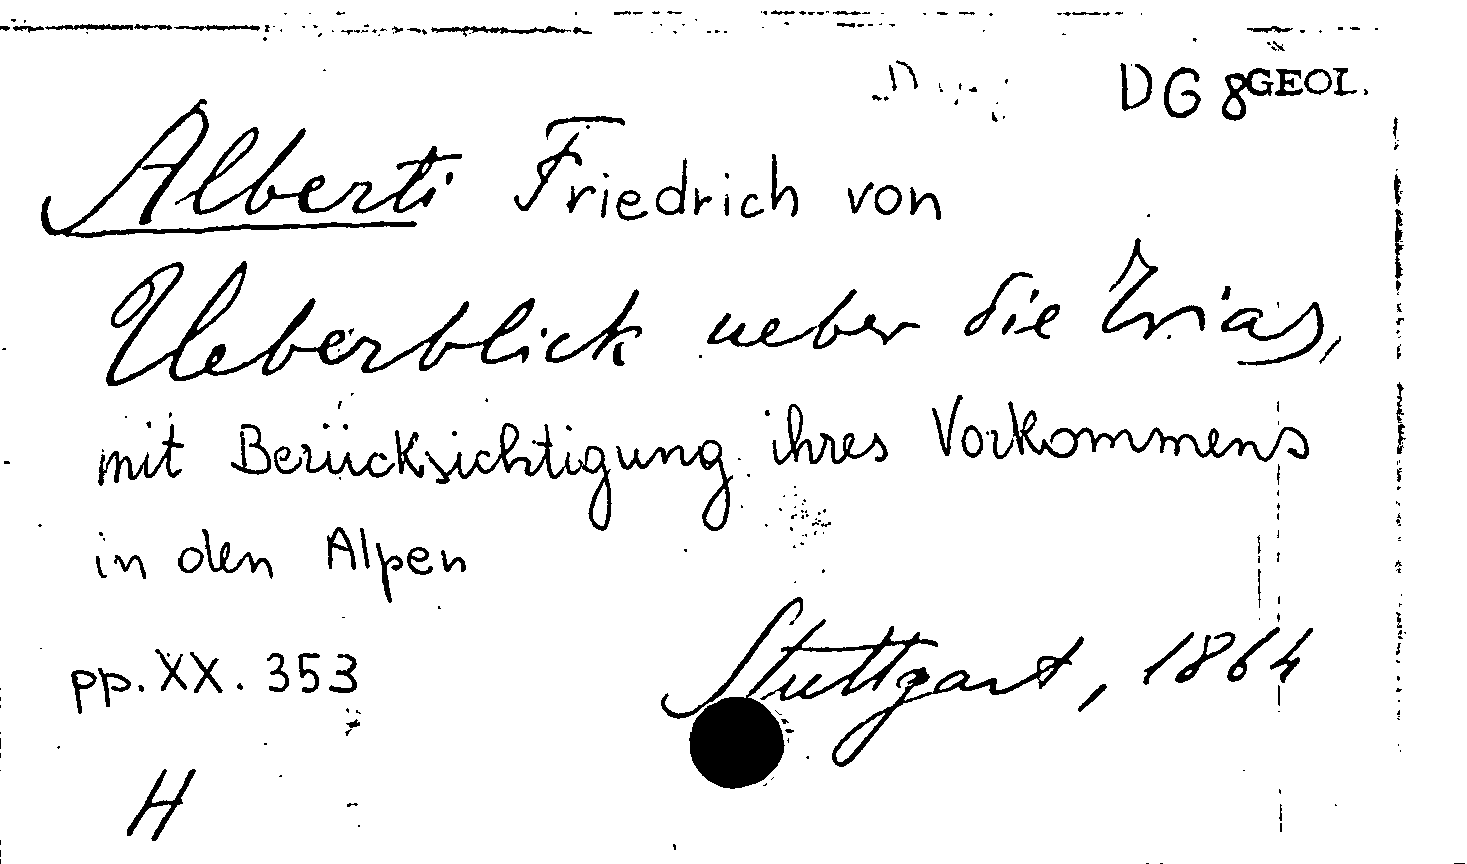 DG 8 GEOL.
Alberti Friedrich von
Ueberblick ueber die Trias,
mit Berücksichtigung ihres Vorkommens
in den Alpen
Stuttgart, 1864
pp. XX. 353
H